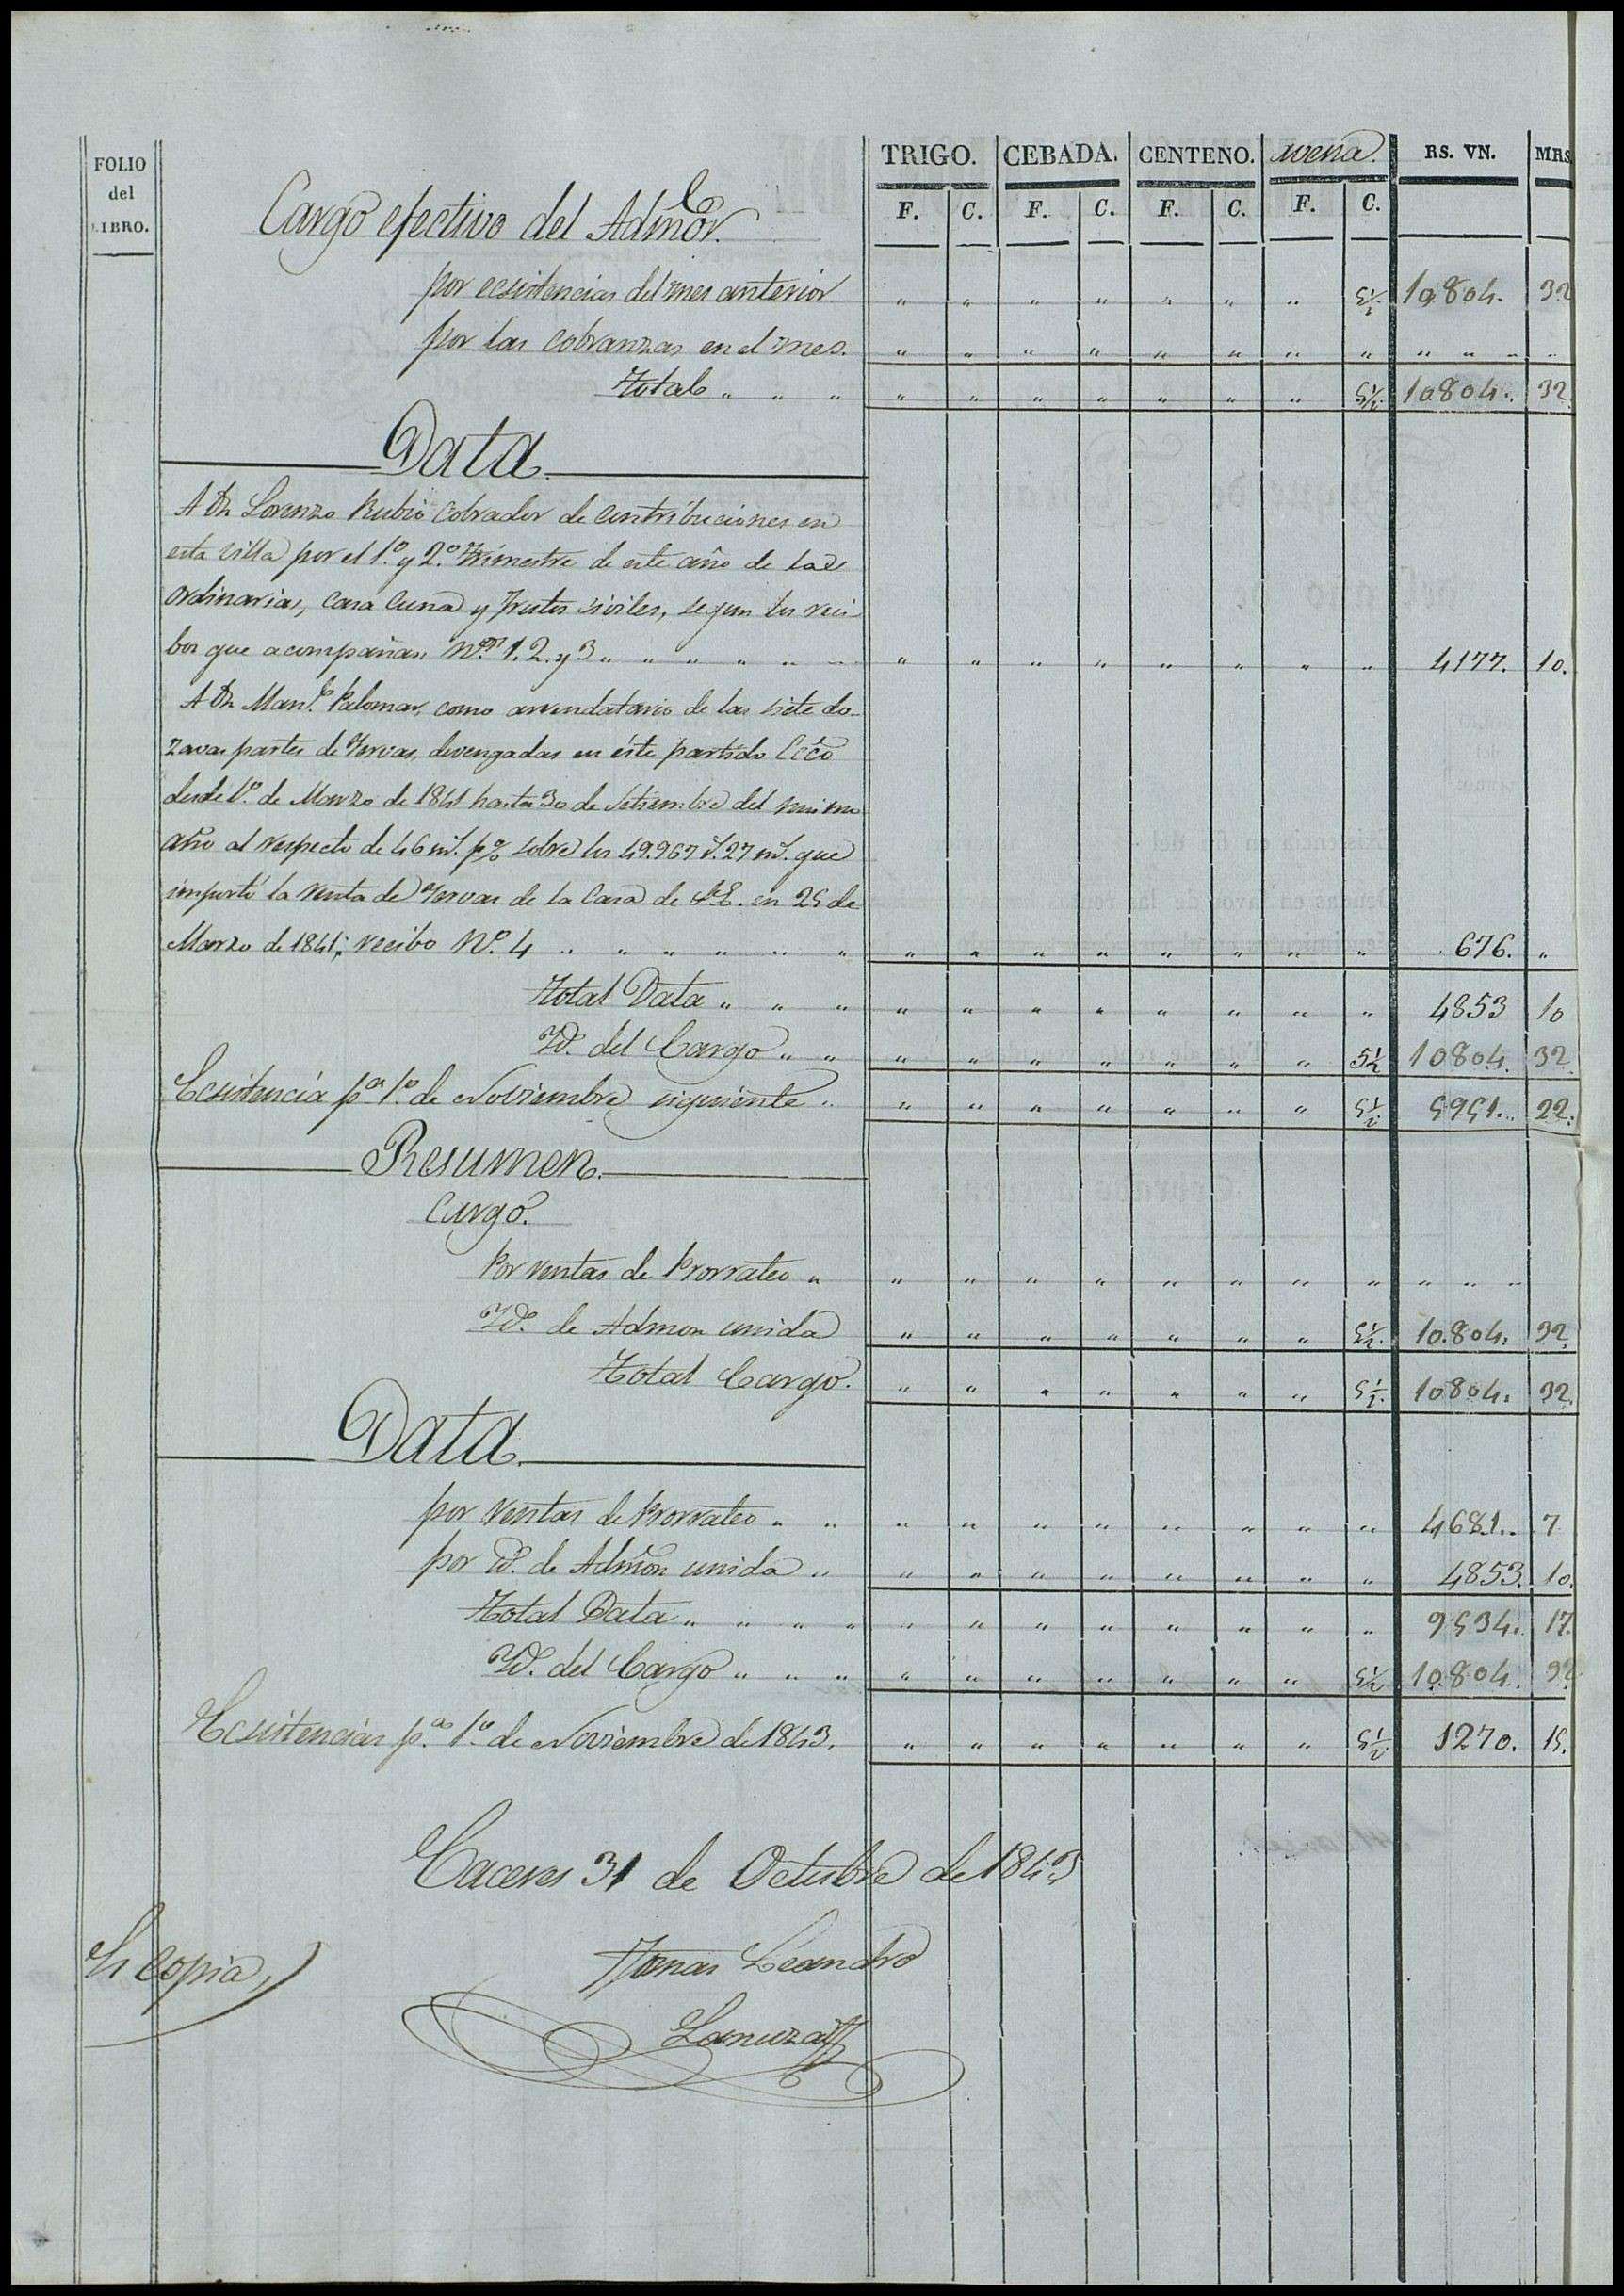 FOLIO
del
LIBRO.
TRIGO. CEBADA. CENTENO. avena. RS. VN. MRS
F. C. F. C. F. C. F. C.
Cargo efectivo del Admor.
por ecsistencias del mes anterior " " " " " " " 5½ 10,804. 32
por las cobranzas en el mes. " " " " " " " " " " " "
Total " " " " " " " " " " 5½ 10.804. 32.
Data.
A Dn Lorenzo Rubio cobrador de contribuciones en
esta villa por el 1.º y 2.º Trimestre de este año de las
ordinarias, casa cuna y frutos siviles, segun los reci-
bos que acompañan N.os 1. 2. y 3 " " " " " " " " " " " " " " 4177. 10.
A Dn Manl. Palomar, como arrendatario de las siete do-
zavas partes de Yervas, devengadas en éste partido Ecco
desde 1.º de Marzo de 1841 hasta 30 de Setiembre del mismo
año al respecto de 46 ms. p% sobre los 49.967 rs. 27 ms. que
importó la venta de Yervas de la Casa de S.E. en 25 de
Marzo de 1841; recibo Nº. 4 " " " " " " " " " " " " " " 676. "
Total Data " " " " " " " " " " " 4853 10
Id. del Cargo " " " " " " " " " 5½ 10804. 32.
Ecsistencia pª. 1º. de Noviembre siguiente " " " " " " " " 5½ 5951. 22.
Resumen.
Cargo.
Por rentas de Prorrateo " " " " " " " " " " " "
Id. de Admon unida " " " " " " " 5½. 10.804. 32
Total Cargo. " " " " " " " 5½. 10804. 32.
Data.
por rentas de Prorrateo " " " " " " " " " " 4681. 7
por id. de Admon unida " " " " " " " " " 4853. 10.
Total Data " " " " " " " " " " " " 9534. 17.
Id. del Cargo " " " " " " " " " " 5½ 10.804. 32
Ecsistencias p.as 1º. de Noviembre de 1843. " " " " " " " 5½ 1270. 15.
Caceres 31 de Octubre de 1843
Tomas Leandro
Lanuza
Es copia,